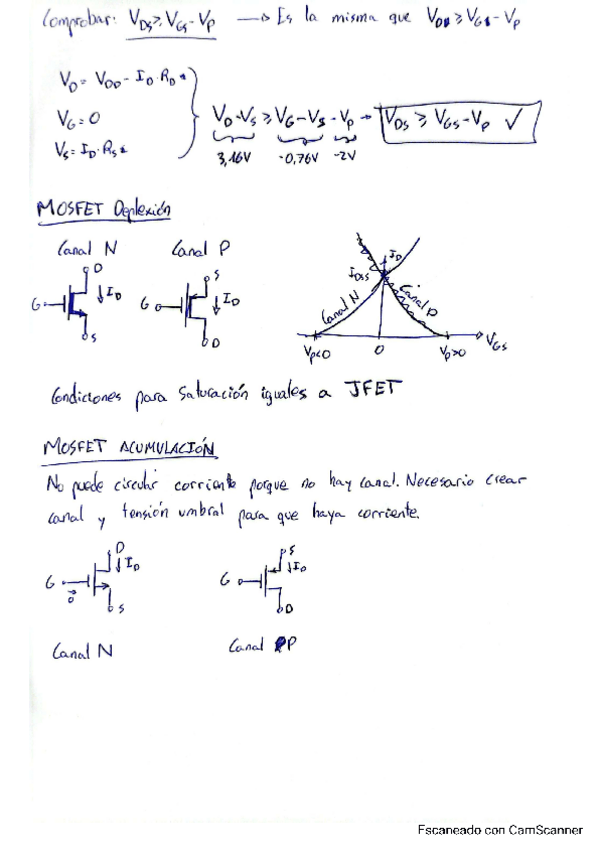 Comprobar: VDS ≥ VGS - VP → Es la misma que VDS ≥ VGS - VP
VD = VDD - ID · RD
VG = 0
VS = ID · RS
VD - VS ≥ VG - VS - VP → VDS ≥ VGS - VP ✓
3,16V -0,76V -2V
MOSFET Deplexión
Canal N Canal P
D
G ID
S
S
G ID
D
ID
IDSS
Canal N Canal P
VP<0 0 VP>0 VGS
Condiciones para saturación iguales a JFET
MOSFET ACUMULACIÓN
No puede circular corriente porque no hay canal. Necesario crear
canal y tensión umbral para que haya corriente.
D
G ID
0
S
S
G ID
D
Canal N Canal P
Escaneado con CamScanner